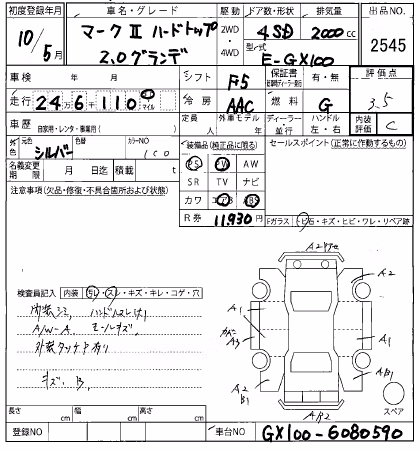 初度登録年月 車名・グレード 駆動 ドア数・形状 排気量 出品NO.
10/5月 マークⅡ ハードトップ 2WD 4SD 2000cc 2545
2.0グランデ 4WD 型式 E-GX100
車検 年 月 シフト F5 保証書 有・無 評価点
走行 24万6千110 マイル 冷房 AAC 燃料 G 3.5
車歴 自家用・レンタ・事業用( ) 定員 人 外車モデル 年 ディーラー 並行 ハンドル 左・右 内装評価 C
外色 元色 シルバー 色替 カラーNO 1C0
装備品(純正品に限る) セールスポイント(正常に作動するもの)
名義変更期限 月 日迄 積載 t
PS PW AW
SR TV ナビ
注意事項(欠品・修復・不具合箇所および状態)
カワ エアB ABS
R券 11,930円
Fガラス トビ石・キズ・ヒビ・ワレ・リペア跡
検査員記入 内装 ヨレ・スレ・キズ・キレ・コゲ・穴
内装シミ ハンドルスレ
A/W-A モールキズ
外装タッチアリ
キズ、B
A2
A1
A3
A1
A2
B1
AB1
AB2
スペア
長さ cm 幅 cm 高さ cm
登録NO 車台NO GX100-6080590